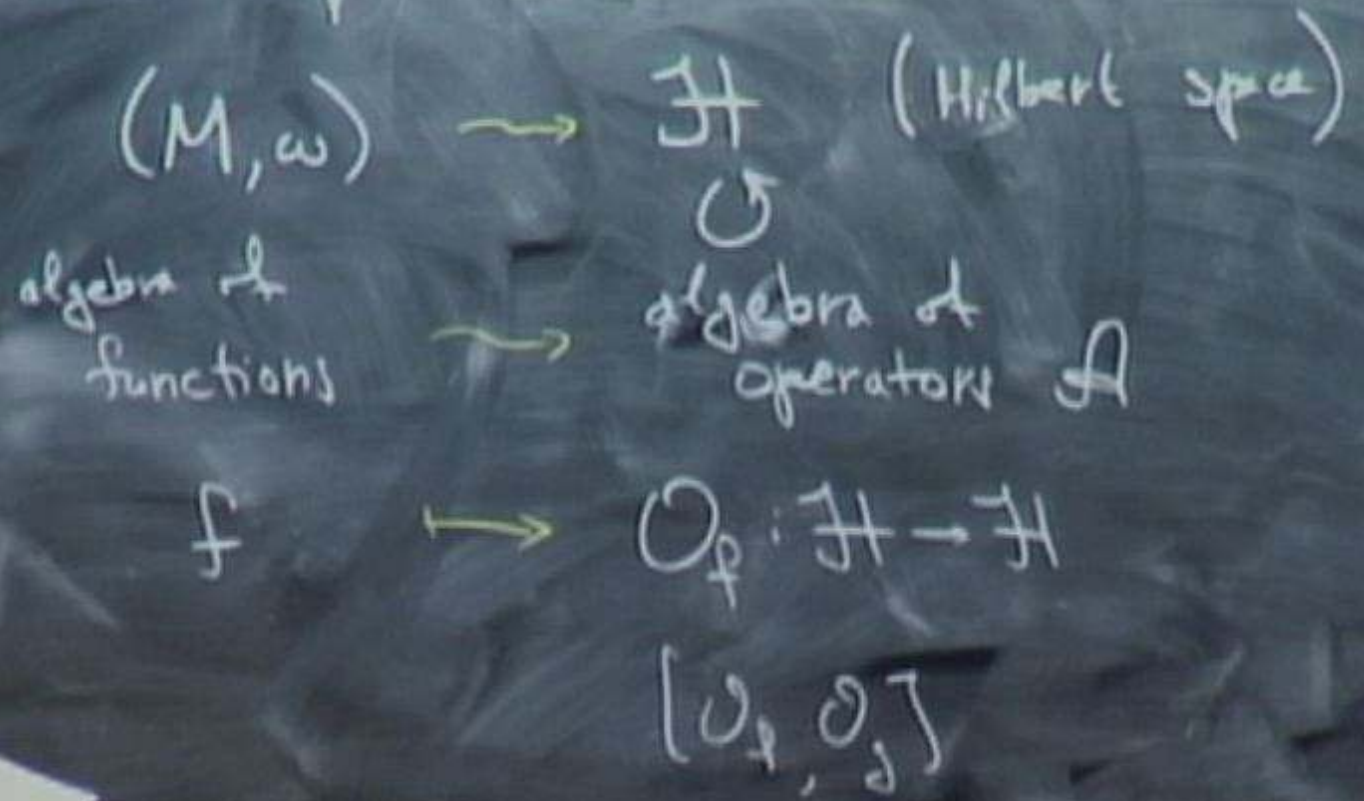 (M, ω) ⇝ ℋ (Hilbert space)
↺
algebra of functions ⇝ algebra of operators 𝒜
f ↦ O_f : ℋ → ℋ
[O_f, O_g]